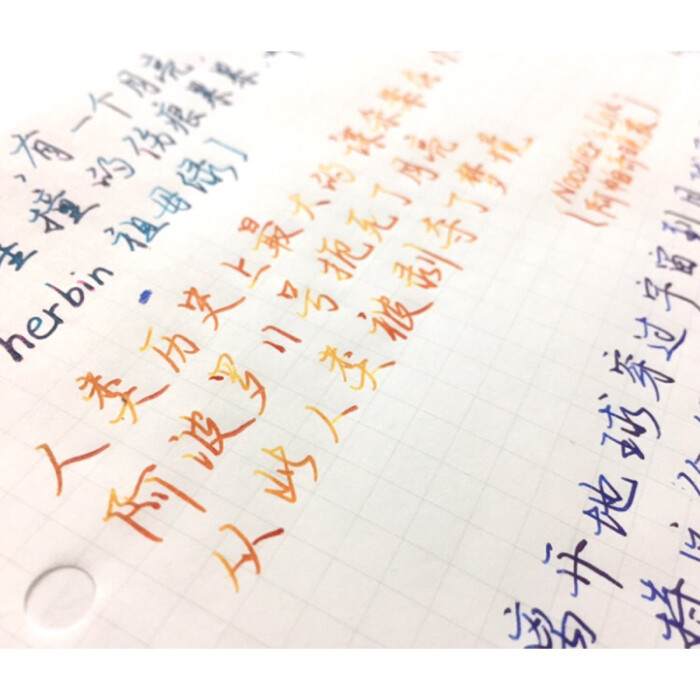 有一个月亮
撞的伤痕累累
herbin 祖母绿)
人类历史上最大的谋杀案
阿波罗11号扼死了月亮
从此人类被剥夺了梦境
Noodler's Ink
(阿帕奇晚霞)
离开地球穿过宇宙到月